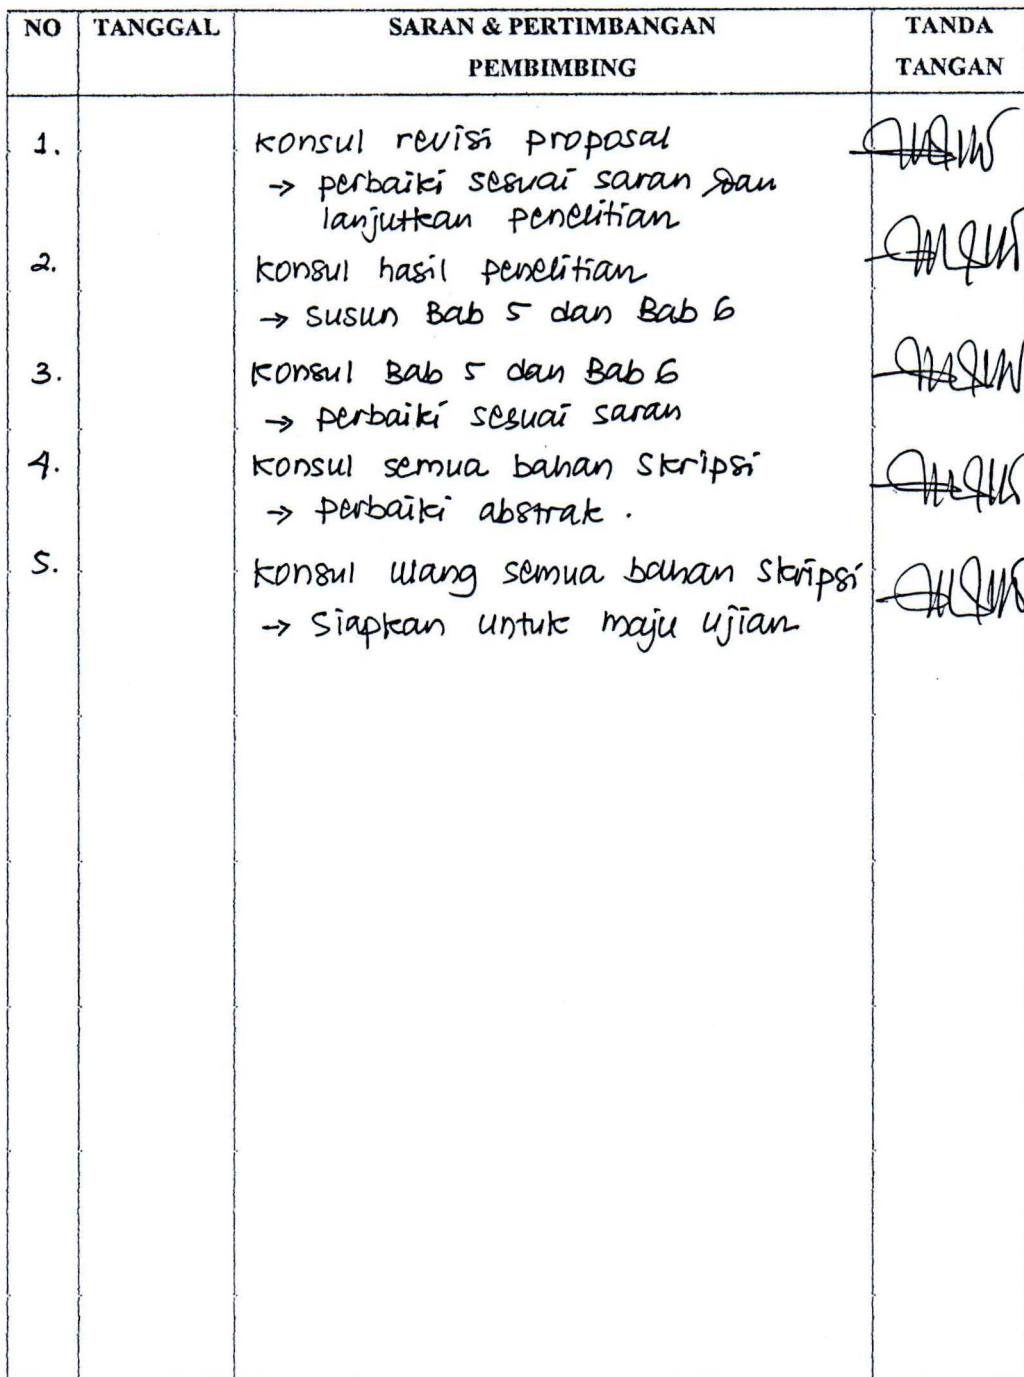 NO TANGGAL SARAN & PERTIMBANGAN TANDA
PEMBIMBING TANGAN
1. Konsul revisi proposal
→ perbaiki sesuai saran dan
lanjutkan penelitian
2. Konsul hasil penelitian
→ susun Bab 5 dan Bab 6
3. Konsul Bab 5 dan Bab 6
→ perbaiki sesuai saran
4. Konsul semua bahan Skripsi
→ perbaiki abstrak.
5. Konsul ulang semua bahan Skripsi
→ Siapkan untuk maju ujian